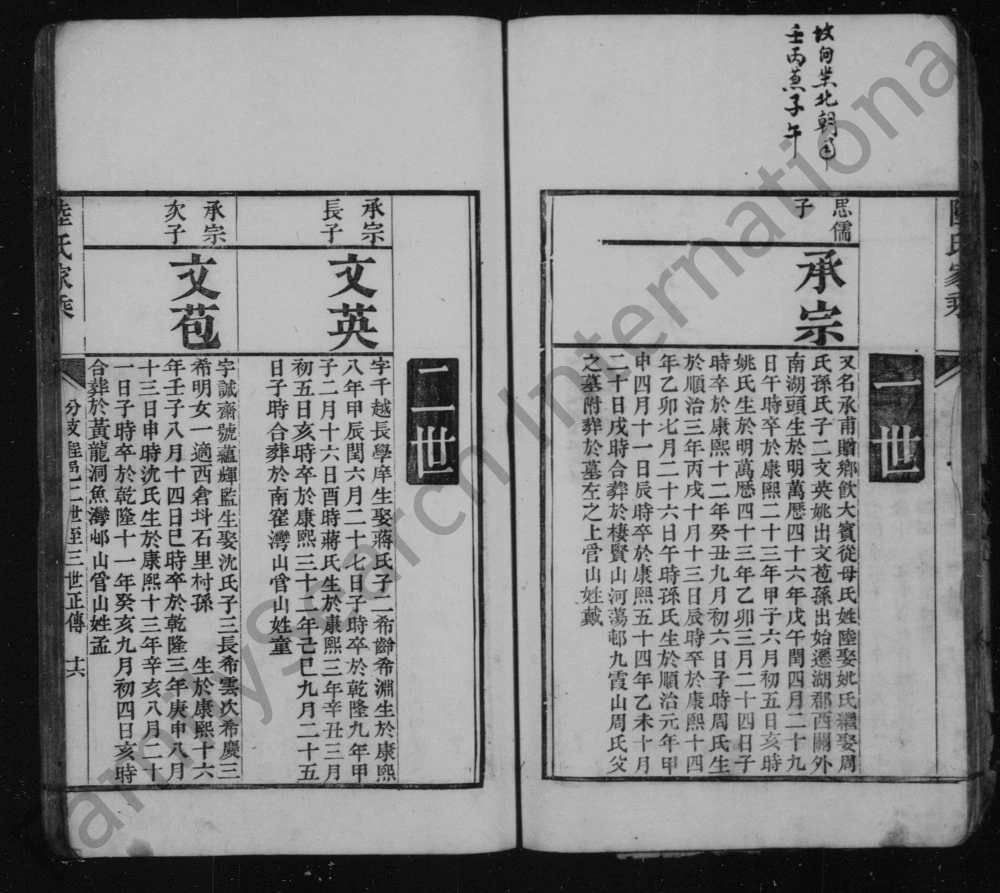 坟向坐北朝南
壬丙兼子午
陸氏家乘
一世
思儒
子
承宗
又名承甫贈鄉飲大賓從母氏姓陸娶姚氏繼娶周
氏孫氏子二文英姚出文苞孫出始遷湖郡西關外
南湖頭生於明萬厯四十六年戊午閏四月二十九
日午時卒於康熙二十三年甲子六月初五日亥時
姚氏生於明萬厯四十三年乙卯三月二十四日子
時卒於康熙十二年癸丑九月初六日子時周氏生
於順治三年丙戌十月十三日辰時卒於康熙十四
年乙卯七月二十六日午時孫氏生於順治元年甲
申四月十一日辰時卒於康熙五十四年乙未十月
二十日戌時合葬於棲賢山河蕩邨九霞山周氏父
之墓附葬於墓左之上官山姓戴
二世
承宗
長子
文英
字千越長學庠生娶蔣氏子二希齡希淵生於康熙
八年甲辰閏六月二十七日子時卒於乾隆九年甲
子二月十六日酉時蔣氏生於康熙三年辛丑三月
初五日亥時卒於康熙三十二年己巳九月二十五
日子時合葬於南窪灣山官山姓童
承宗
次子
文苞
字誠齋號蘊輝監生娶沈氏子三長希雲次希慶三
希明女一適西倉圤石里村孫 生於康熙十六
年壬子八月十四日巳時卒於乾隆三年庚申八月
十三日申時沈氏生於康熙十三年辛亥八月二十
一日子時卒於乾隆十一年癸亥九月初四日亥時
合葬於黃龍洞魚灣邨山官山姓孟
陸氏家乘
分支 二世至三世正傳
familysearch International